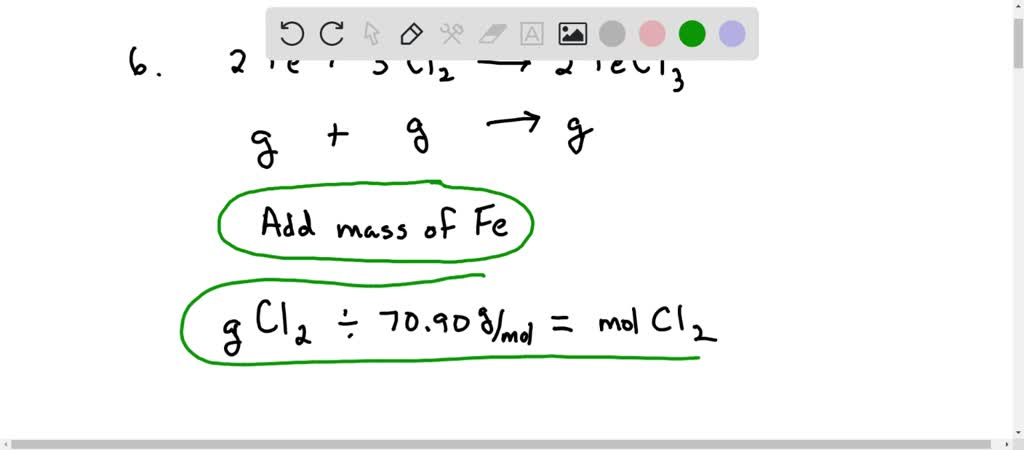 6. 2 Fe + 3 Cl₂ → 2 FeCl₃
g + g → g
Add mass of Fe
g Cl₂ ÷ 70.90 g/mol = mol Cl₂